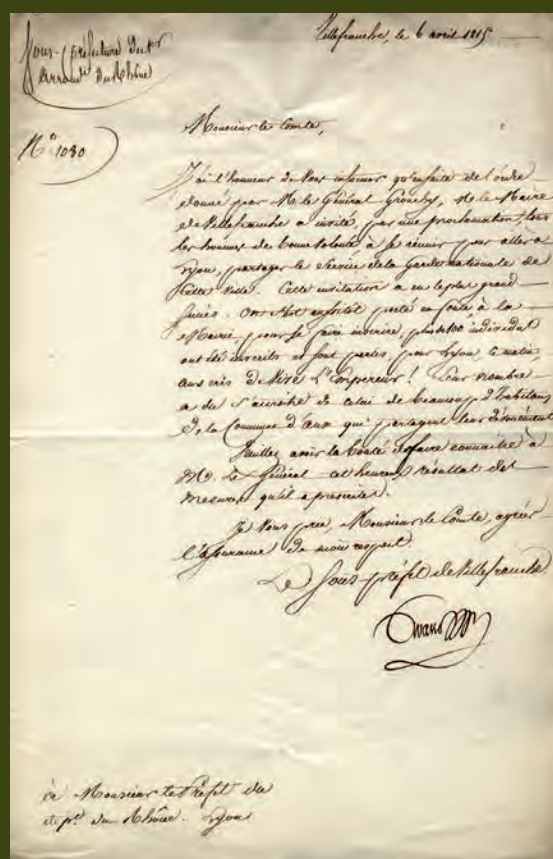 Sous-préfecture du 1er
Arrondt du Rhône
Villefranche, le 6 avril 1815
No 1080
Monsieur le Comte,
J'ai l'honneur de vous informer qu'ensuite de l'ordre
donné par M. le Général Grouchy, M. le Maire
de Villefranche a invité, par une proclamation, tous
les hommes de bonne volonté à se réunir pour aller à
Lyon, partager le service de la Garde nationale de
cette ville. Cette invitation a eu le plus grand
succès. On s'est aussitôt porté en foule, à la
Mairie, pour se faire inscrire, plus de 100 individus
ont été inscrits et sont partis, pour Lyon, ce matin,
aux cris de Vive l'Empereur ! Leur nombre
a dû s'accroître de celui de beaucoup d'habitans
de la Commune d'Anse qui partagent leur dévouement
Veuillez avoir la bonté de faire connaître à
M. le Général cet heureux résultat des
mesures qu'il a prescrites.
Je vous prie, Monsieur le Comte, agréer
l'assurance de mon respect.
Le Sous-préfet de Villefranche
à Monsieur le Préfet du
dépt. du Rhône. Lyon